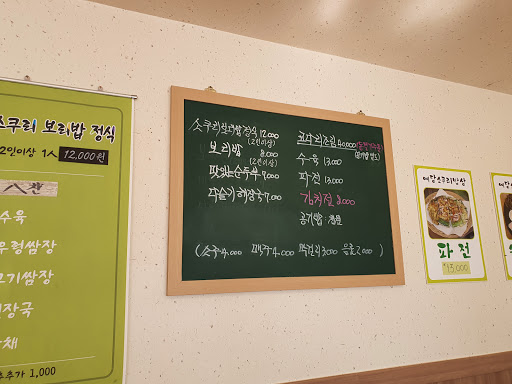 소쿠리 보리밥 정식
2인이상 1人 12,000원
수육
우렁쌈장
고기쌈장
된장국
잡채
추가 1,000
소쿠리보리밥정식 12,000
(2인이상)
보리밥 8,000
(2인이상)
맛있는순두부 7,000
다슬기해장국 7,000
코다리조림 40,000
(공기밥 별도)
수육 13,000
파전 13,000
김치전 8,000
공기밥:
(소주4,000 맥주4,000 막걸리3,000 음료2,000)
파전
13,000